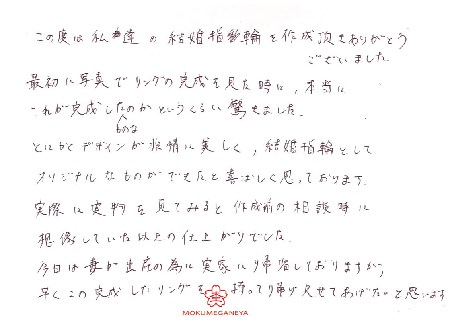 この度は私達の結婚指輪を作成頂きありがとう
ございました。
最初に写真でリングの完成を見た時に、本当に
これが完成したものなのかというくらい驚きました。
とにかくデザインが非常に美しく、結婚指輪として
オリジナルなものができたと喜ばしく思っております。
実際に実物を見てみると作成前の相談時に
想像していた以上の仕上がりでした。
今日は妻が出産の為に実家に帰省しておりますが、
早くこの完成したリングを持って帰り見せてあげたいと思います
MOKUMEGANEYA